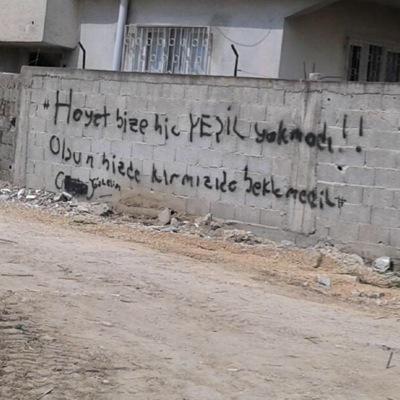 "Hayat bize hiç YEŞİL yakmadı!!
Olsun bizde kırmızıda beklemedik"